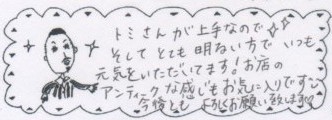 トミさんが上手なので
そして とても明るい方で いつも
元気をいただいてます！お店の
アンティークな感じもお気に入りです
今後とも よろしくお願い致します